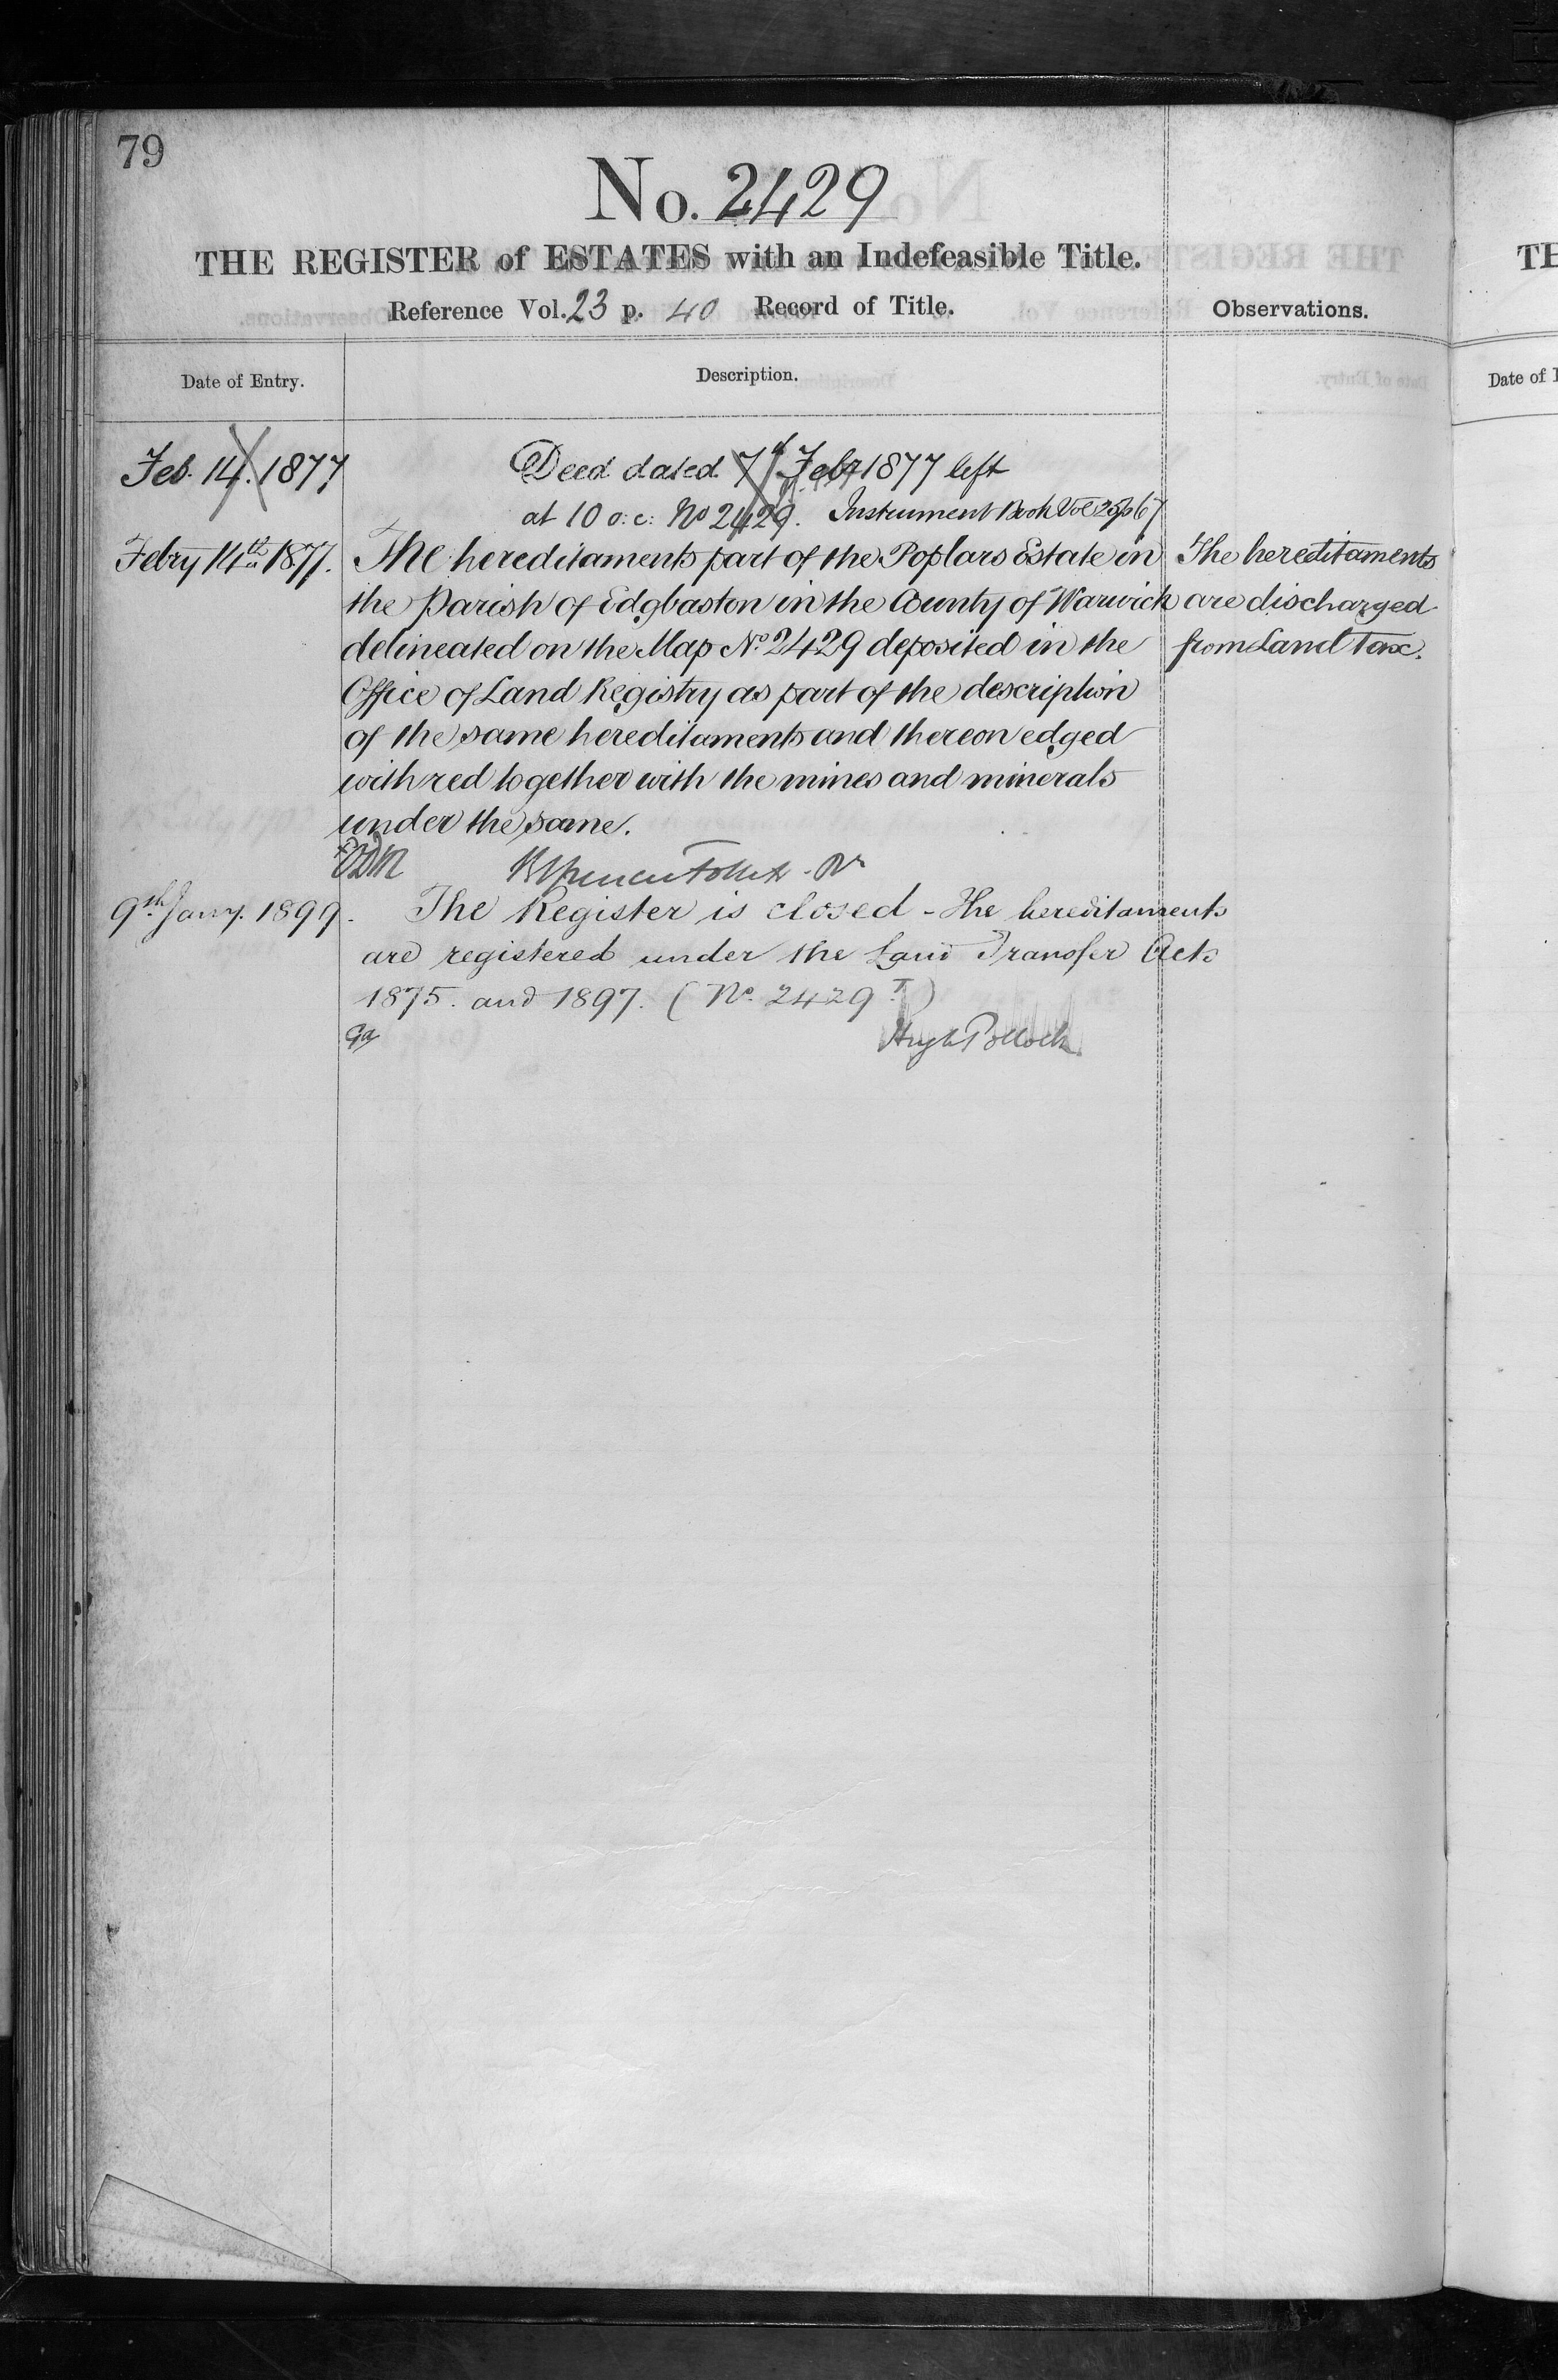 79
No. 2429
THE REGISTER of ESTATES with an Indefeasible Title.
Reference Vol. 23 p. 40 Record of Title.
Observations.
Date of Entry.
Description.
Feb. 14. 1877
Deed dated 7th Feby 1877 left
at 10 o:c: No 2429. Instrument Book Vol 25 p 67
Febry 14th 1877.
The hereditaments part of the Poplars Estate in
the Parish of Edgbaston in the County of Warwick
delineated on the Map No. 2429 deposited in the
Office of Land Registry as part of the description
of the same hereditaments and thereon edged
with red together with the mines and minerals
under the same.
The hereditaments
are discharged
from Land Tax.
9th Jany. 1899.
The Register is closed - The hereditaments
are registered under the Land Transfer Acts
1875. and 1897. (No. 2429 T)
Hugh Pollock
TH
Date of